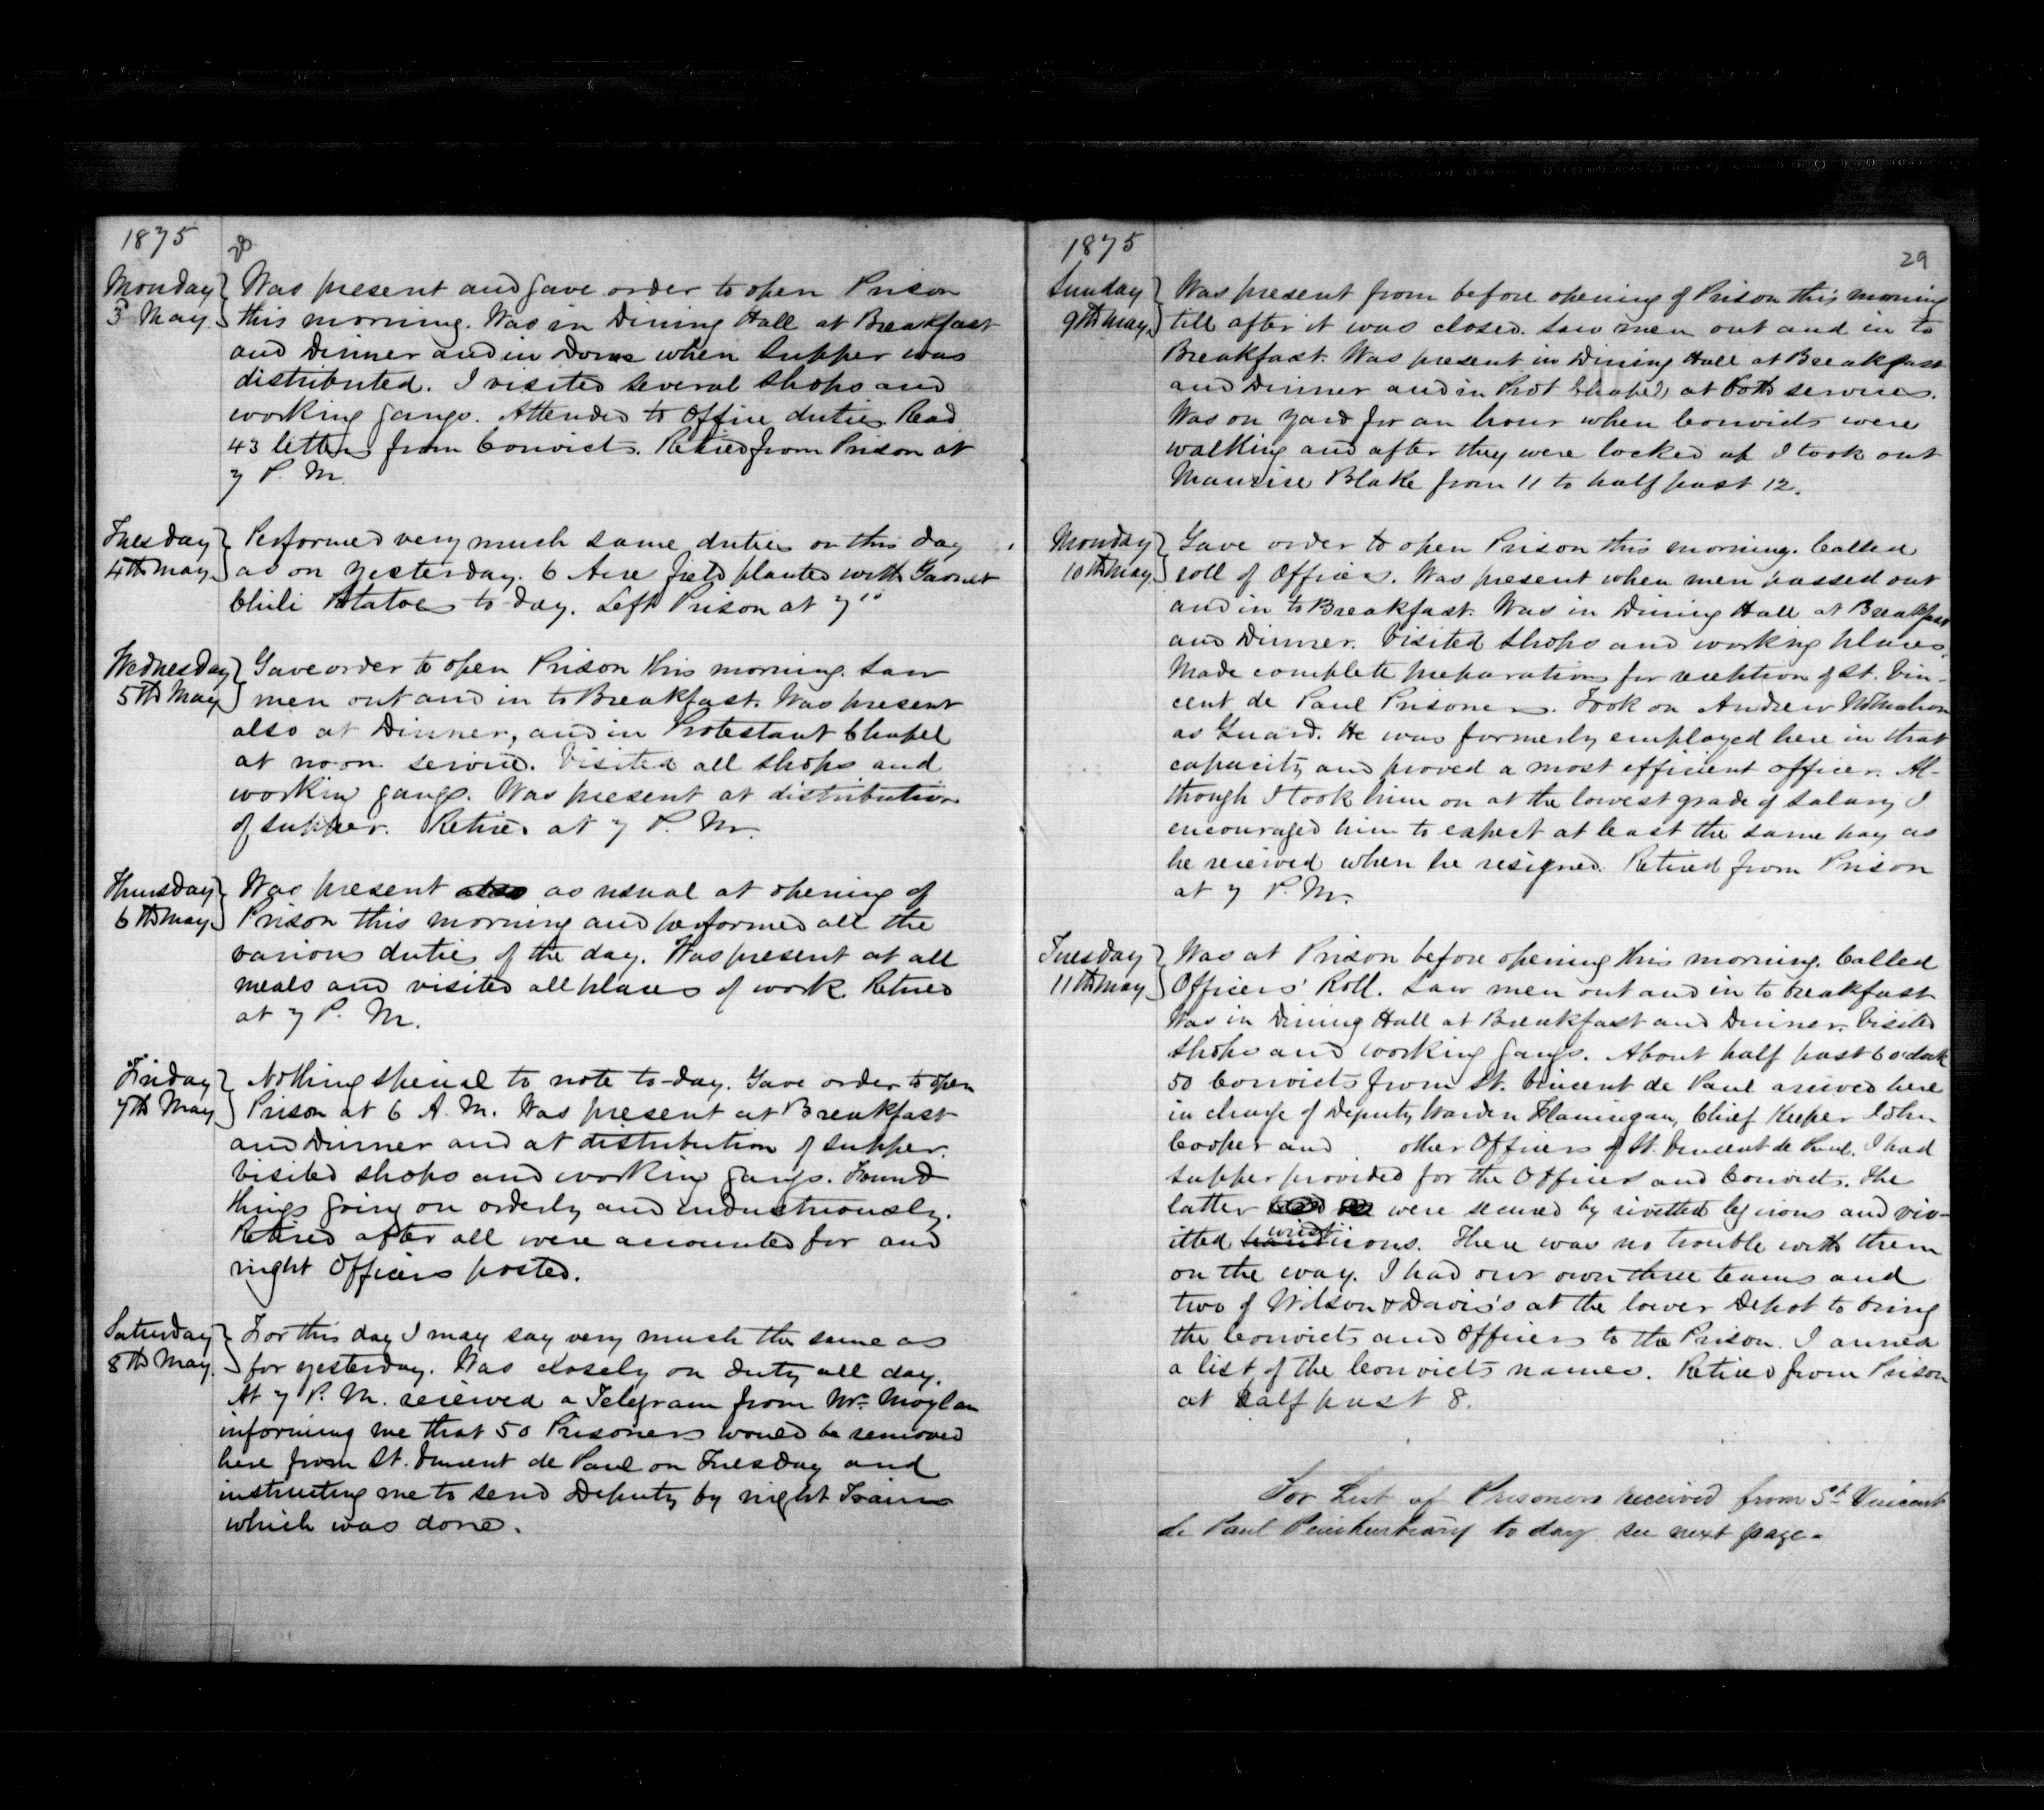 1875
28
Monday
3 May
Was present and gave order to open Prison
this morning. Was in Dining Hall at Breakfast
and Dinner and in Dome when Supper was
distributed. I visited several Shops and
working gangs. Attended to Office duties. Read
43 letters from Convicts. Retired from Prison at
7 P. M.
Tuesday
4th May
Performed very much same duties on this day
as on yesterday. 6 Acre field planted with Garnet
Chili Potatoes to-day. Left Prison at 7
Wednesday
5th May
Gave order to open Prison this morning. Saw
men out and in to Breakfast. Was present
also at Dinner, and in Protestant Chapel
at noon service. Visited all shops and
working gangs. Was present at distribution
of supper. Retired at 7 P. M.
Thursday
6th May
Was present also as usual at opening of
Prison this morning and performed all the
various duties of the day. Was present at all
meals and visited all places of work. Retired
at 7 P. M.
Friday
7th May
Nothing special to note to-day. Gave order to open
Prison at 6 A. M. Was present at Breakfast
and Dinner and at distribution of supper.
Visited shops and working gangs. Found
things going on orderly and industriously.
Retired after all were accounted for and
night Officers posted.
Saturday
8th May
For this day I may say very much the same as
for yesterday. Was closely on duty all day.
At 7 P. M. received a Telegram from Mr. Moylan
informing me that 50 Prisoners would be removed
here from St. Vincent de Paul on Tuesday and
instructing me to send Deputy by night Train
which was done.
1875
29
Sunday
9th May
Was present from before opening of Prison this morning
till after it was closed. Saw men out and in to
Breakfast. Was present in Dining Hall at Breakfast
and Dinner and in Prot Chapel at both services.
Was on yard for an hour when Convicts were
walking and after they were locked up I took out
Maurice Blake from 11 to half past 12.
Monday
10th May
Gave order to open Prison this morning. Called
roll of Officers. Was present when men passed out
and in to Breakfast. Was in Dining Hall at Breakfast
and Dinner. Visited Shops and working places.
Made complete preparations for reception of St. Vin-
cent de Paul Prisoners. Took on Andrew McMahon
as Guard. He was formerly employed here in that
capacity and proved a most efficient officer. Al-
though I took him on at the lowest grade of salary I
encouraged him to expect at least the same pay as
he received when he resigned. Retired from Prison
at 7 P. M.
Tuesday
11th May
Was at Prison before opening this morning. Called
Officers' Roll. Saw men out and in to breakfast
Was in Dining Hall at Breakfast and Dinner. Visited
Shops and working gangs. About half past 6 o'clock
50 Convicts from St. Vincent de Paul arrived here
in charge of Deputy Warden Flannigan, Chief Keeper John
Cooper and other Officers of St. Vincent de Paul. I had
supper provided for the Officers and Convicts. The
latter were secured by rivetted leg irons and riv-
itted hand wrist irons. There was no trouble with them
on the way. I had our own three teams and
two of Wilson & Davis's at the lower Depot to bring
the Convicts and Officers to the Prison. I annex
a list of the Convicts names. Retired from Prison
at half past 8.
For List of Prisoners received from St. Vincent
de Paul Penitentiary to day see next page.